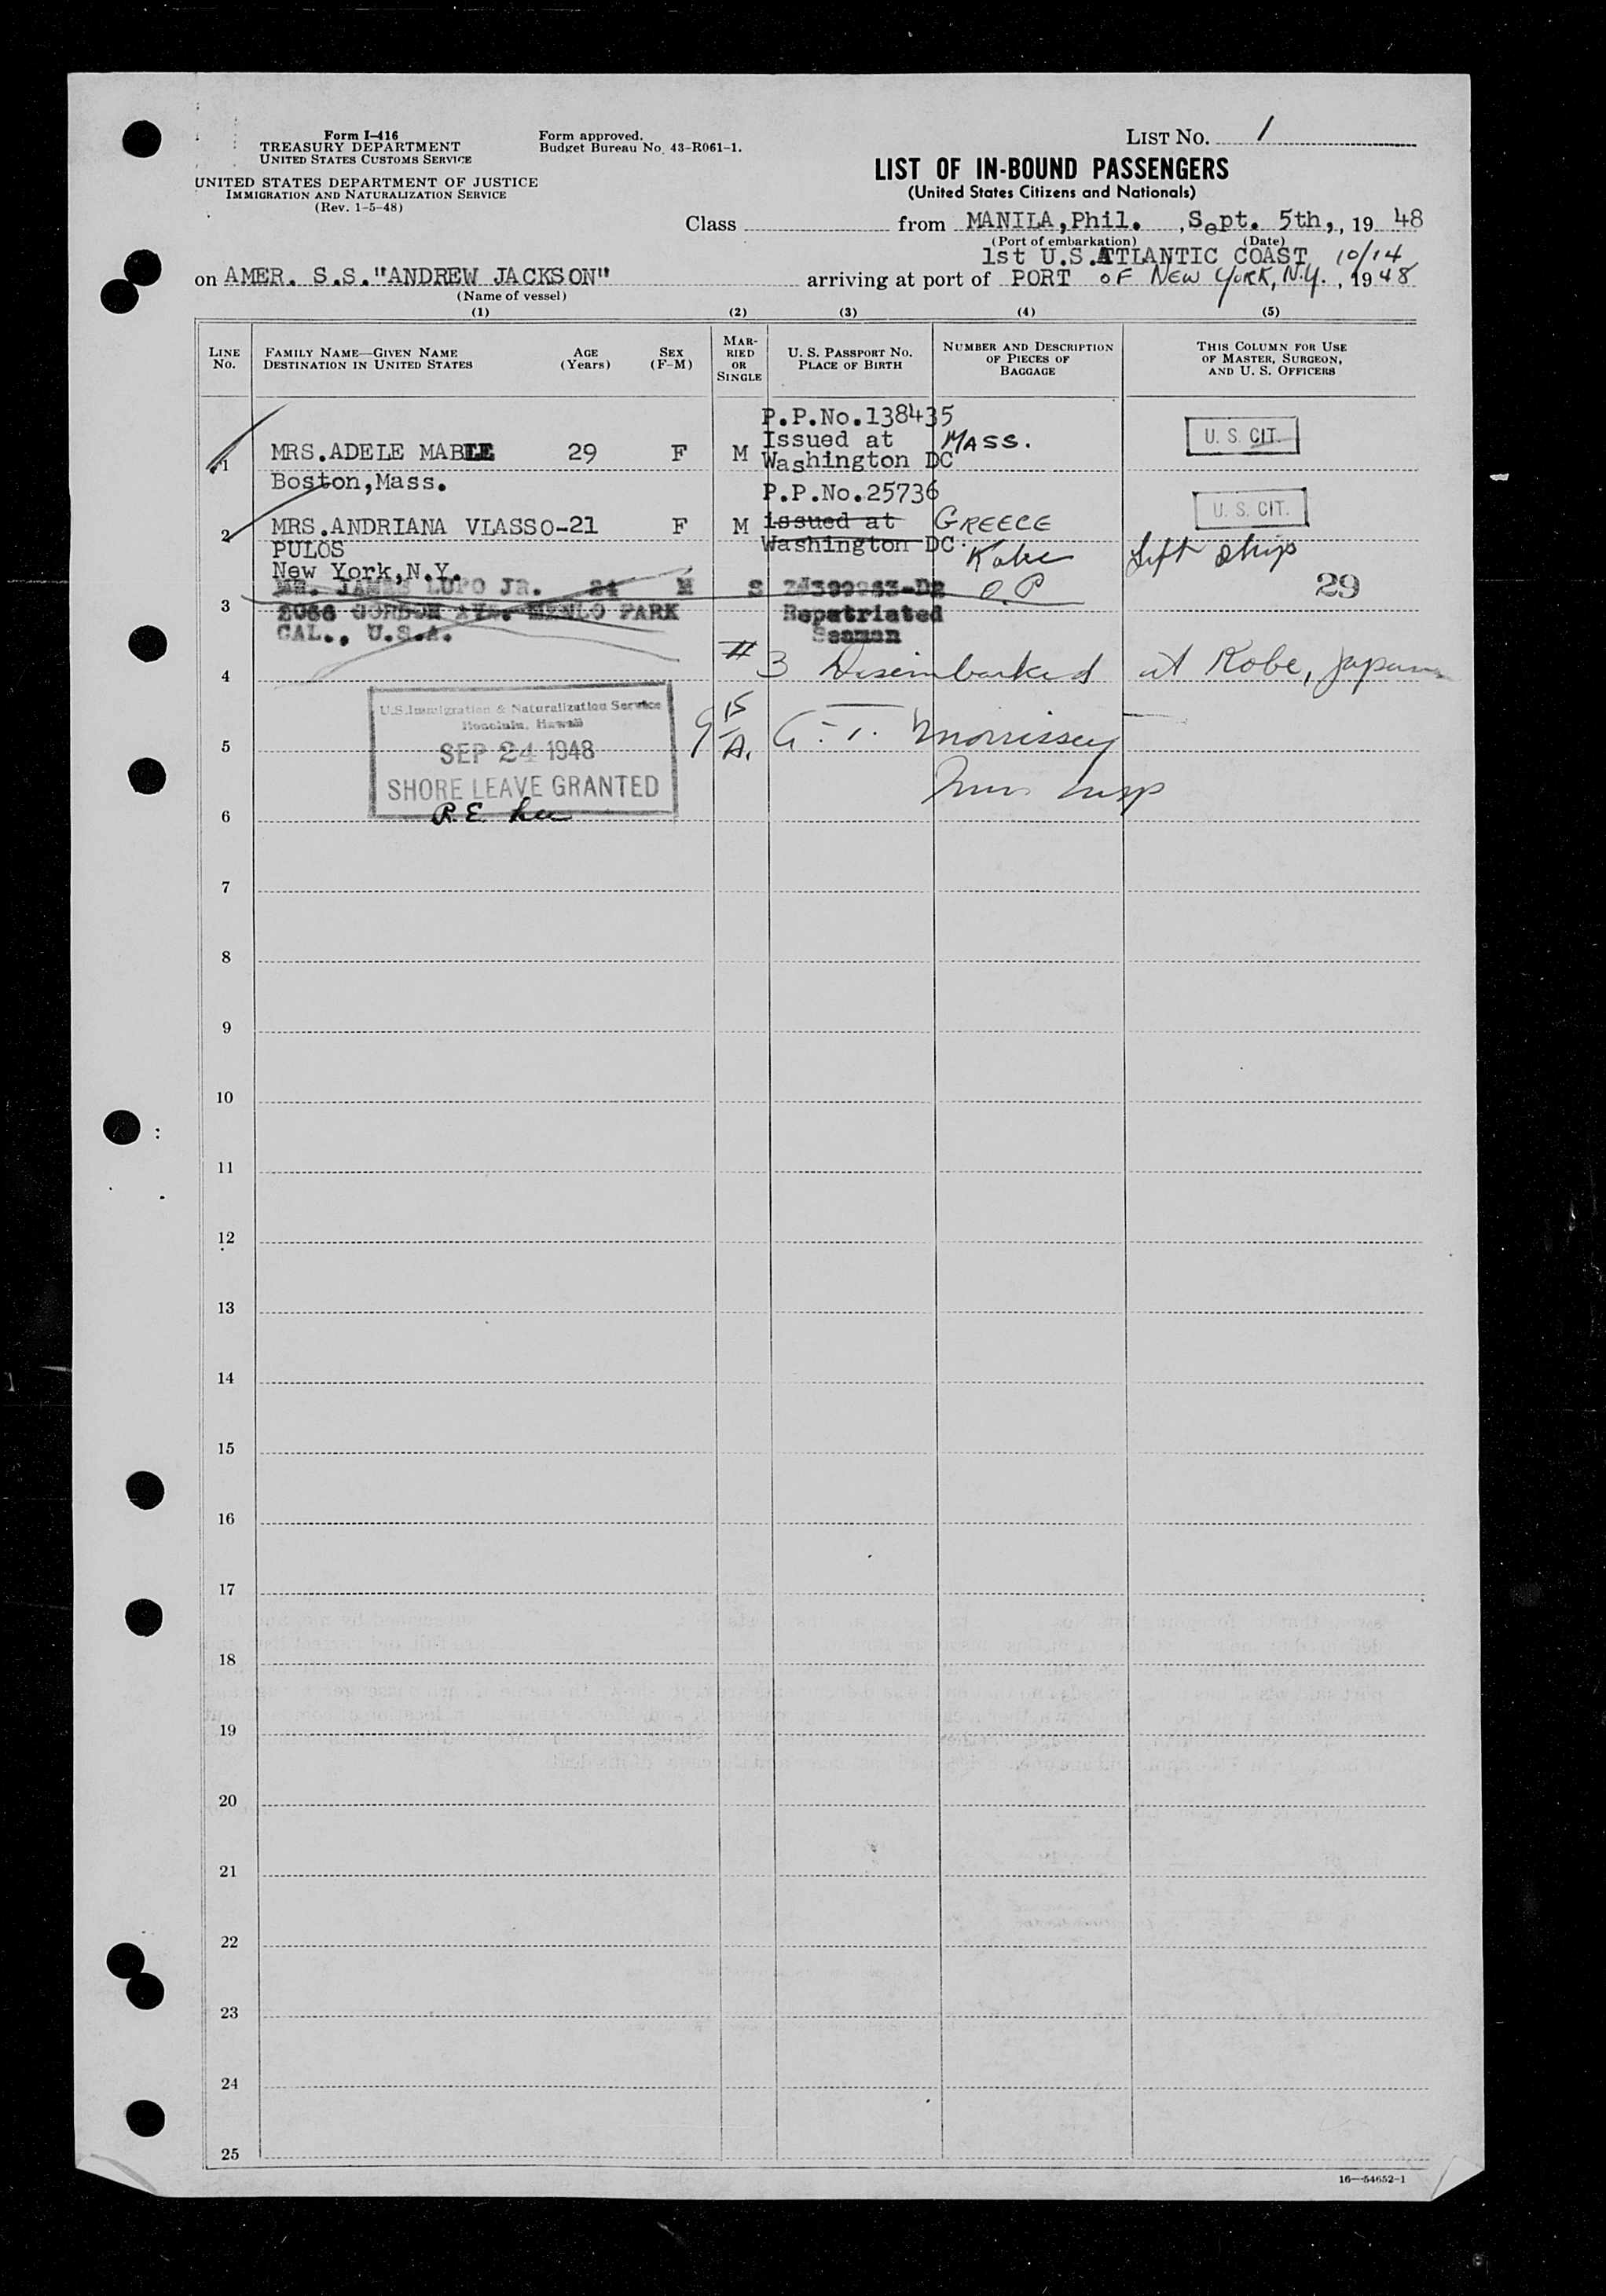 Form I-416
TREASURY DEPARTMENT
UNITED STATES CUSTOMS SERVICE
UNITED STATES DEPARTMENT OF JUSTICE
IMMIGRATION AND NATURALIZATION SERVICE
(Rev. 1-5-48)
Form approved.
Budget Bureau No. 43-R061-1.
LIST NO. 1
LIST OF IN-BOUND PASSENGERS
(United States Citizens and Nationals)
Class from MANILA,Phil. , Sept. 5th, , 19 48
(Port of embarkation) (Date)
1st U.S.ATLANTIC COAST 10/14
on AMER. S.S."ANDREW JACKSON" arriving at port of PORT OF NEW YORK, N.Y. , 1948
(Name of vessel)
(1) (2) (3) (4) (5)
LINE NO.
FAMILY NAME—GIVEN NAME
DESTINATION IN UNITED STATES
AGE
(Years)
SEX
(F-M)
MAR-
RIED
OR
SINGLE
U. S. PASSPORT NO.
PLACE OF BIRTH
NUMBER AND DESCRIPTION
OF PIECES OF
BAGGAGE
THIS COLUMN FOR USE
OF MASTER, SURGEON,
AND U. S. OFFICERS
P.P.No.138435
Issued at MASS. U. S. CIT.
1 MRS.ADELE MABEE 29 F M Washington DC
Boston,Mass.
P.P.No.25736
2 MRS.ANDRIANA VLASSO- 21 F M issued at GREECE U. S. CIT.
PULOS Washington DC.
New York,N.Y. Kobe Left Ship
MR. JAMES LUPO JR. 24 M S O.P 29
3 GORDON AVE. MENLO PARK Repatriated
CAL., U.S.A. Seaman
4 # 3 Disembarked at Kobe, Japan
U.S.Immigration & Naturalization Service
Honolulu, Hawaii
5 SEP 24 1948
SHORE LEAVE GRANTED
R.E. Lee
G. T. Morrissey
Imm Insp
6
7
8
9
10
11
12
13
14
15
16
17
18
19
20
21
22
23
24
25
16—54652-1